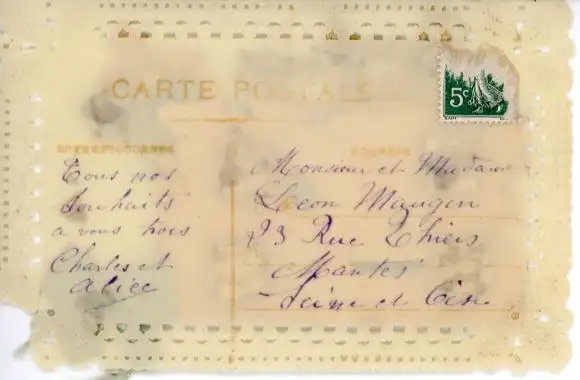 CARTE POSTALE
5c
CORRESPONDANCE
ADRESSE
Tous nos
Souhaits
a vous trois
Charles et
alice
Monsieur et Madame
Leon Maugin
23 Rue Thiers
Mantes
Seine et Oise